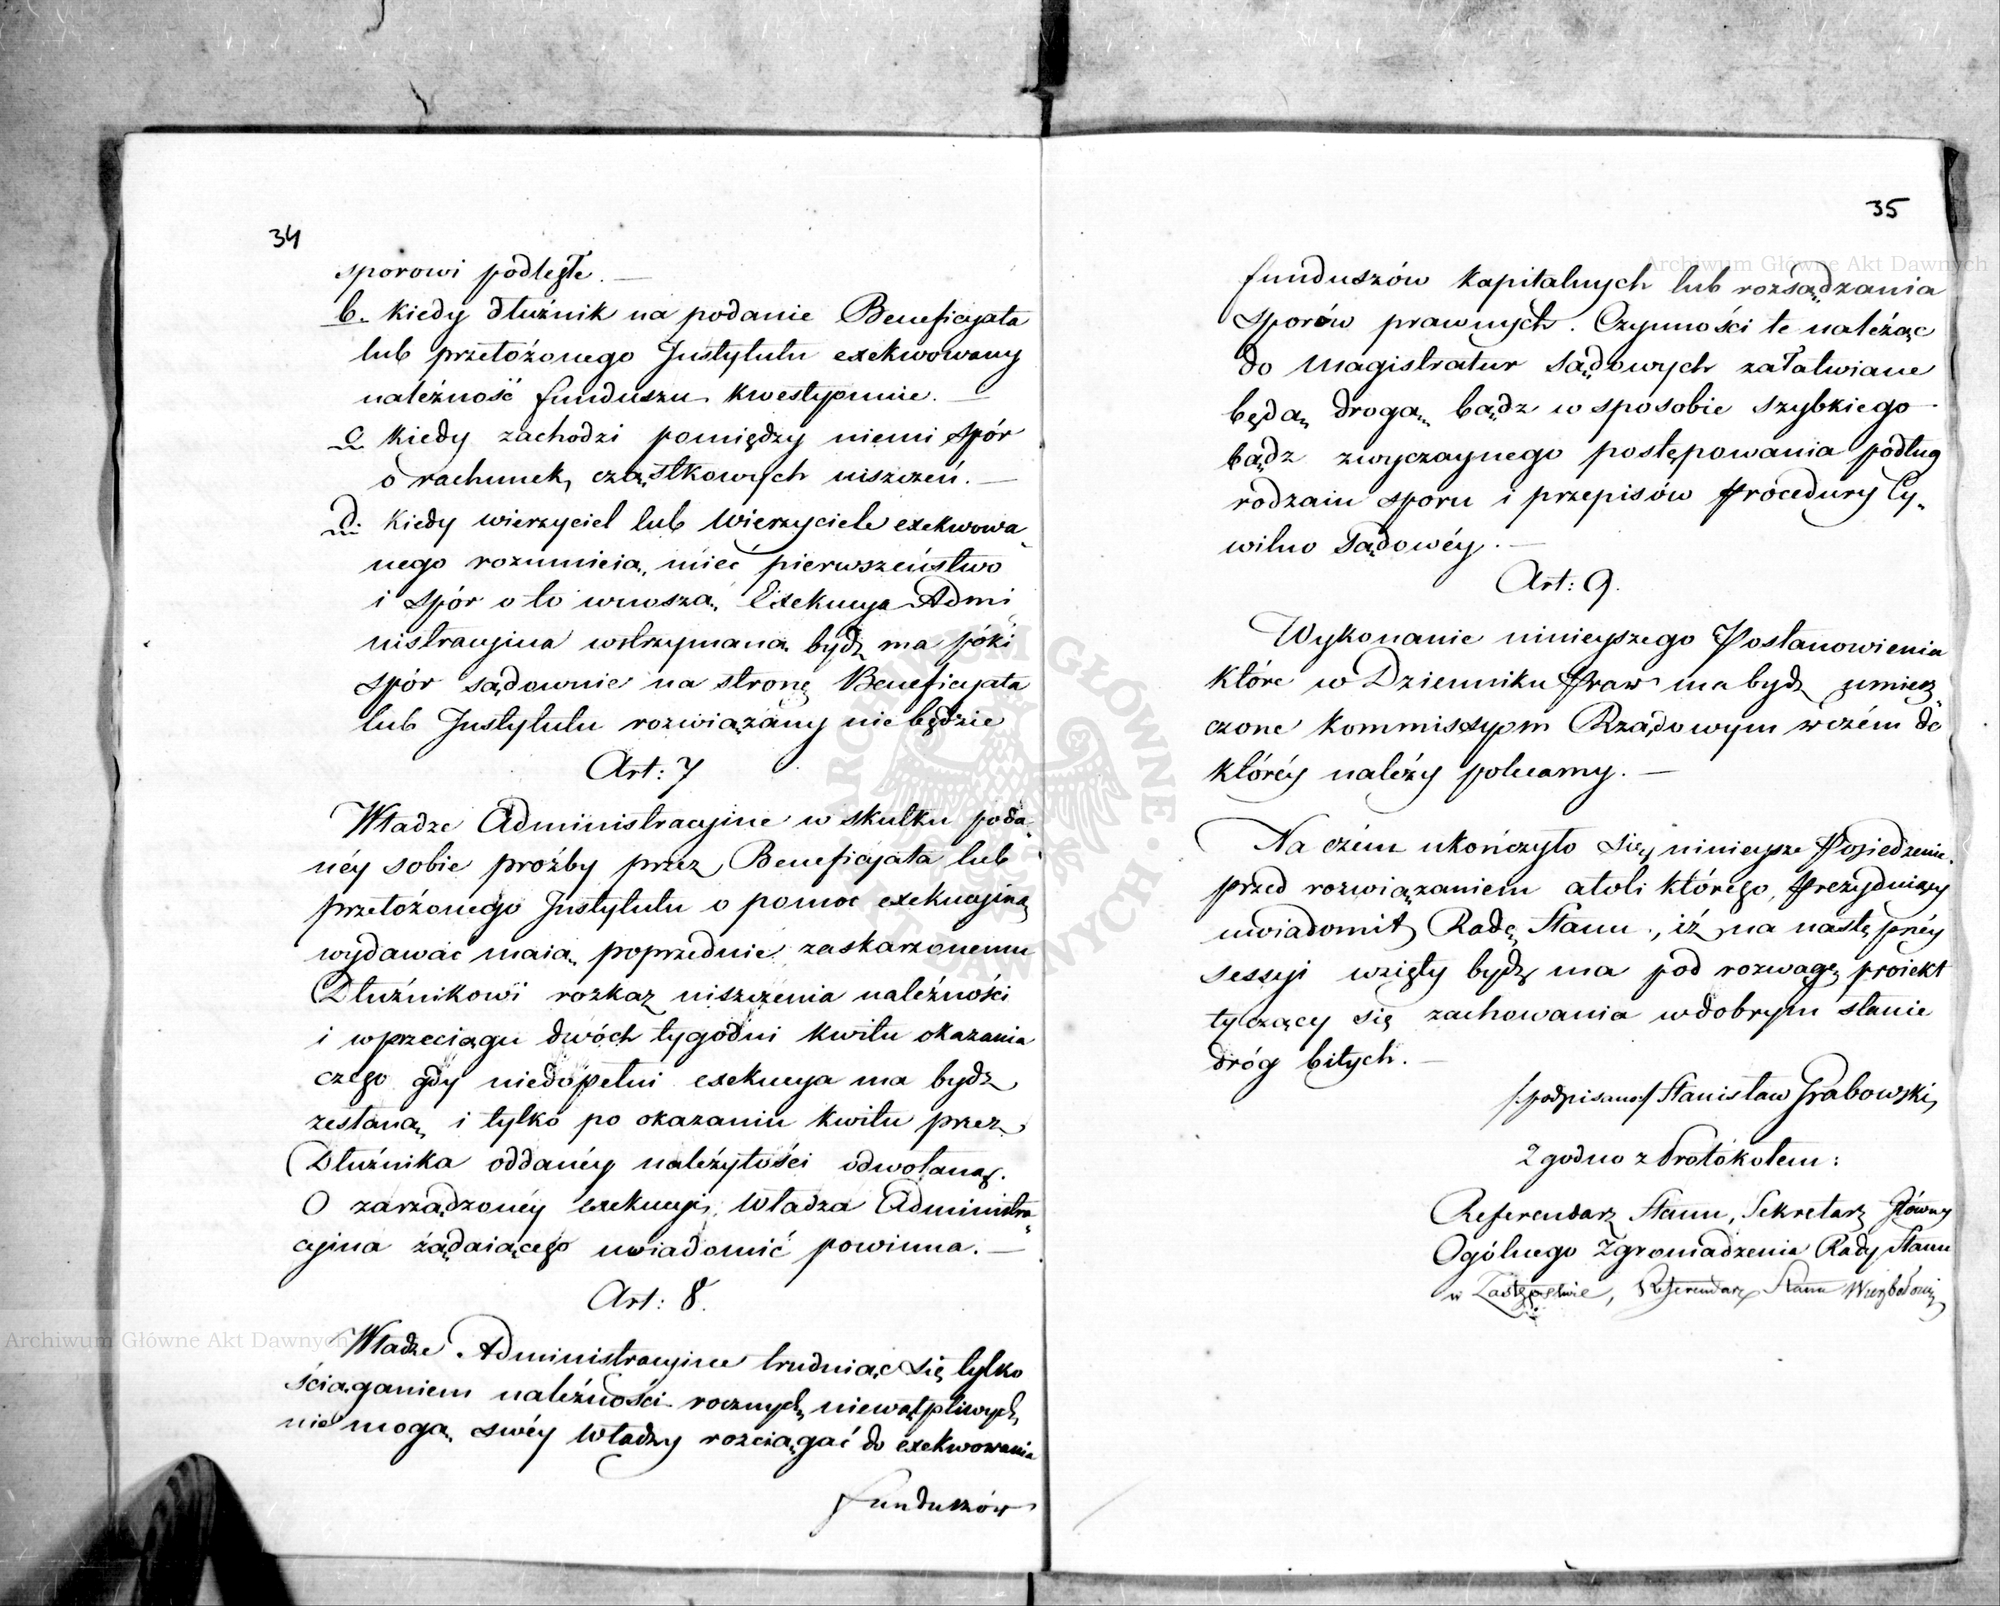 34
sporowi podległe. —
b. kiedy dłużnik na podanie Beneficyjata
lub przełożonego Instytutu exekwowany
należność funduszu kwestyonuie. —
c kiedy zachodzi pomiędzy niemi spór
o rachunek, cząstkowych uiszczeń. —
d. kiedy wierzyciel lub Wierzyciele exekwowa„
nego rozumieią, mieć pierwszeństwo
i spór o to wnoszą, Exekucya Admi„
nistracyjna wstrzymaną bydź ma póki
spór sądownie na stronę Beneficyjata
lub Instytutu rozwiązany nie będzie
Art: 7
Władze Administracyjne w skutku poda„
néy sobie proźby przez Beneficyjata lub
przełożonego Instytutu o pomoc exekucyjną
wydawać maią poprzednie zaskarzonemu
Dłużnikowi rozkaz uiszczenia należności
i w przeciągu dwóch tygodni kwitu okazania
czego gdy niedopełni exekucya ma bydź
zesłaną i tylko po okazaniu kwitu przez
Dłużnika oddanéy należytości odwołaną.
O zarządzonéy exekucyi Władza Administra„
cyjna żądaiącego uwiadomić powinna. —
Art: 8.
Władze Administracyjne trudniąc się tylko
ściąganiem należności rocznych, niewątpliwych,
nie mogą swéy Władzy rozciągać do exekwowania
funduszów
35
funduszów kapitalnych lub rozsądzania
sporów prawnych. Czynności te należąc
do Magistratur Sądowych załatwiane
będą drogą bądz w sposobie szybkiego
bądz zwyczaynego postępowania podług
rodzaiu sporu i przepisów Procedury Cy„
wilno Sądowéy. —
Art: 9.
Wykonanie ninieyszego Postanowienia
które w Dzienniku Praw ma bydź umiesz„
czone Kommissyom Rządowym w czém do
któréy należy polecamy. —
Na czém ukończyło się ninieysze Posiedzenie,
przed rozwiązaniem atoli którego, Prezyduiący
uwiadomił Radę Stanu, iż na następnéy
sessyi wzięty bydź ma pod rozwagę proiekt
tyczący się zachowania w dobrym stanie
dróg bitych. —
/:podpisano:/ Stanisław Grabowski,
Zgodno z Protokołem:
Referendarz Stanu, Sekretarz Główny
Ogólnego Zgromadzenia Rady Stanu
w Zastępstwie, Referendarz Stanu
Archiwum Główne Akt Dawnych
Archiwum Główne Akt Dawnych
ARCHIWUM GŁÓWNE · AKT DAWNYCH ·